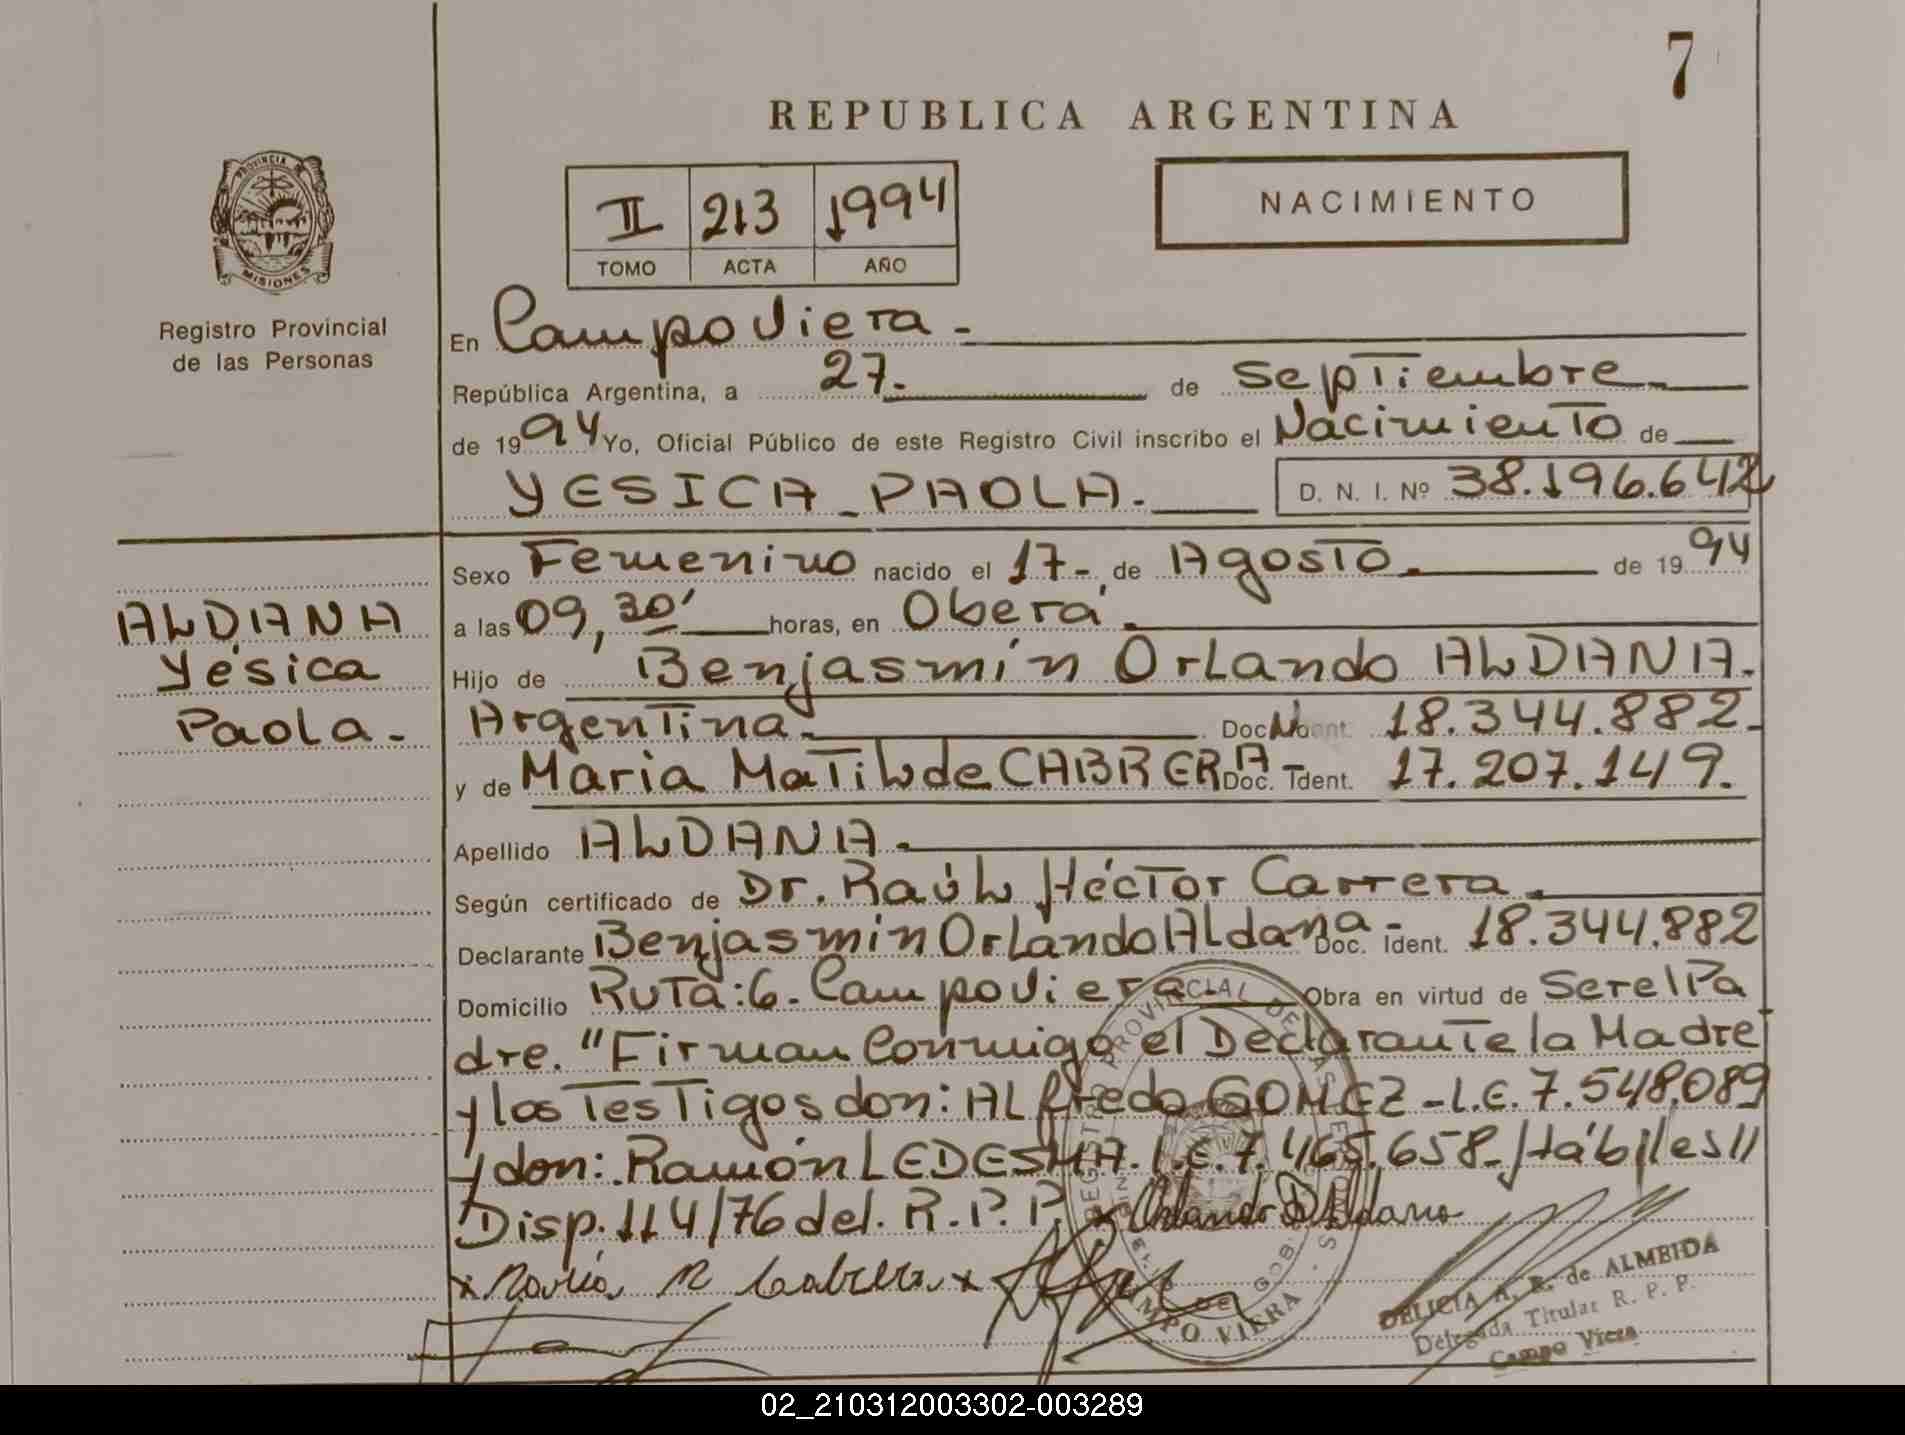 7
REPUBLICA ARGENTINA
PROVINCIA DE
MISIONES
Registro Provincial
de las Personas
II 213 1994
TOMO ACTA AÑO
NACIMIENTO
En Campo Viera.-
República Argentina, a 27.- de septiembre.-
de 1994 Yo, Oficial Público de este Registro Civil inscribo el Nacimiento de
YESICA PAOLA.- D. N. I. Nº 38.196.642
Sexo Femenino nacido el 17- de Agosto.- de 1994
a las 09,30' horas, en Oberá.
Hijo de Benjasmín Orlando ALDANA.
Argentina.- Doc. 18.344.882.-
y de Maria Matilde CABRERA- Doc. Ident. 17.207.149.
Apellido ALDANA.-
Según certificado de Dr. Raúl Héctor Carrera.-
Declarante Benjasmín Orlando Aldana- Doc. Ident. 18.344.882
Domicilio Ruta:6.-Campo Viera- Obra en virtud de Ser el Pa
dre. "Firman Conmigo el Declarante la Madre
y los Testigos don: Alfredo GOMEZ-L.E.7.548.089
y don: Ramón LEDESMA.L.E.7.465.658-Hábiles//
Disp. 114/76 del. R.P.P. x Orlando B Aldana
x María M Cabrera x
ALDANA
Yésica
Paola.-
REGISTRO PROVINCIAL DE LAS PERSONAS
CAMPO VIERA
DELICIA A. R. de ALMEIDA
Delegada Titular R. P. P.
Campo Viera
02_210312003302-003289